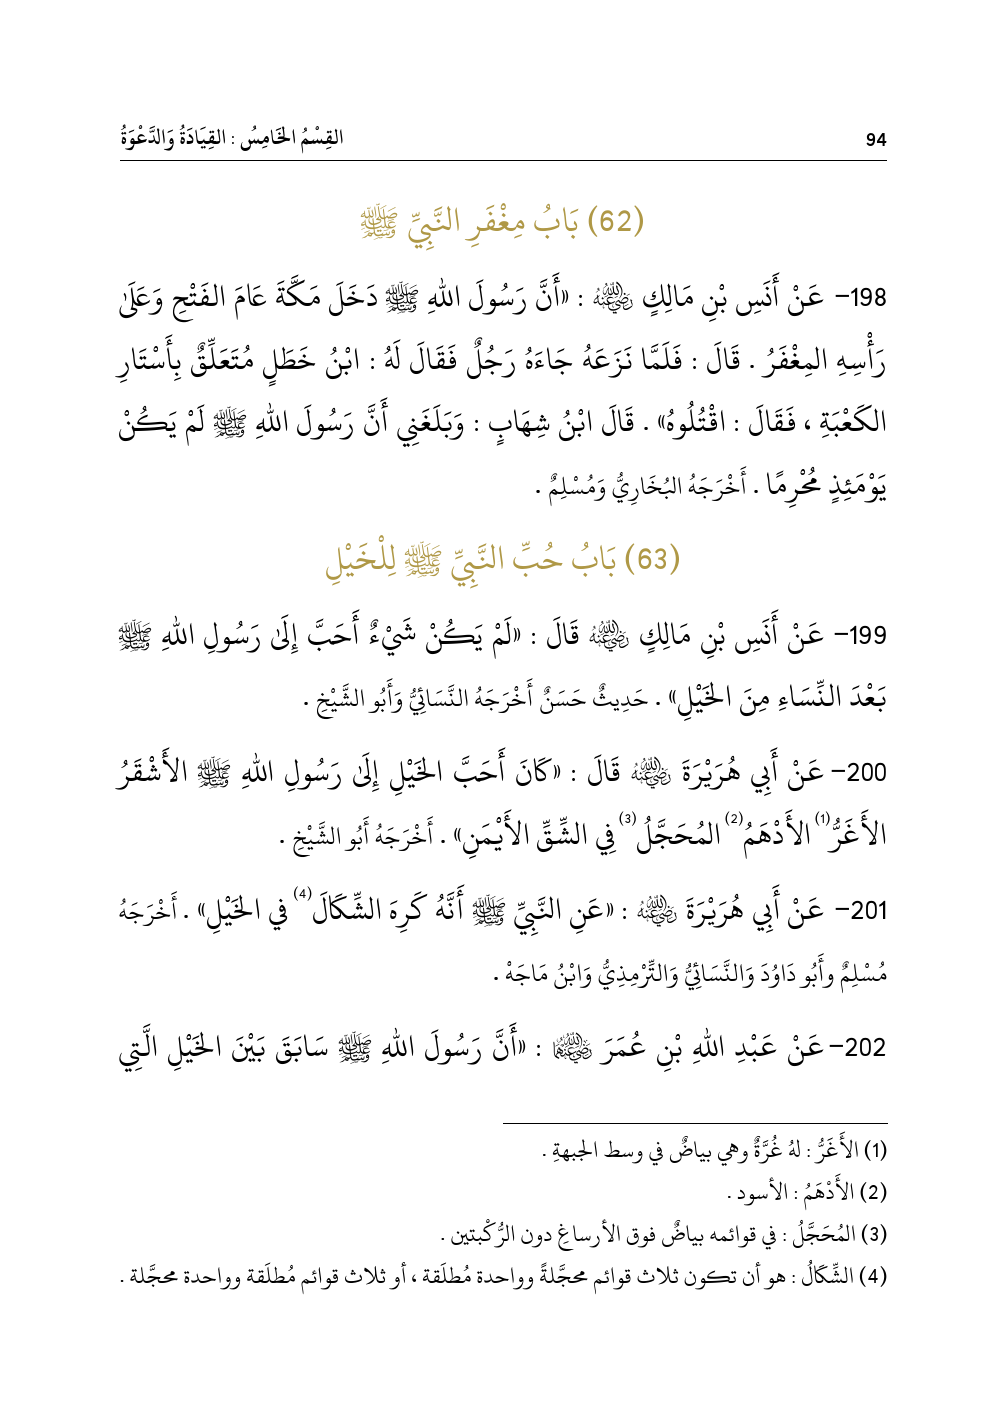 94
القِسْمُ الخَامِسُ : القِيَادَةُ وَالدَّعْوَةُ
(62) بَابُ مِغْفَرِ النَّبِيِّ ﷺ
198- عَنْ أَنَسِ بْنِ مَالِكٍ رضي الله عنه : «أَنَّ رَسُولَ اللهِ ﷺ دَخَلَ مَكَّةَ عَامَ الفَتْحِ وَعَلَىٰ
رَأْسِهِ المِغْفَرُ . قَالَ : فَلَمَّا نَزَعَهُ جَاءَهُ رَجُلٌ فَقَالَ لَهُ : ابْنُ خَطَلٍ مُتَعَلِّقٌ بِأَسْتَارِ
الكَعْبَةِ ، فَقَالَ : اقْتُلُوهُ» . قَالَ ابْنُ شِهَابٍ : وَبَلَغَنِي أَنَّ رَسُولَ اللهِ ﷺ لَمْ يَكُنْ
يَوْمَئِذٍ مُحْرِمًا . أَخْرَجَهُ البُخَارِيُّ وَمُسْلِمٌ .
(63) بَابُ حُبِّ النَّبِيِّ ﷺ لِلْخَيْلِ
199- عَنْ أَنَسِ بْنِ مَالِكٍ رضي الله عنه قَالَ : «لَمْ يَكُنْ شَيْءٌ أَحَبَّ إِلَىٰ رَسُولِ اللهِ ﷺ
بَعْدَ النِّسَاءِ مِنَ الخَيْلِ» . حَدِيثٌ حَسَنٌ أَخْرَجَهُ النَّسَائِيُّ وَأَبُو الشَّيْخِ .
200- عَنْ أَبِي هُرَيْرَةَ رضي الله عنه قَالَ : «كَانَ أَحَبَّ الخَيْلِ إِلَىٰ رَسُولِ اللهِ ﷺ الأَشْقَرُ
الأَغَرُّ(1) الأَدْهَمُ(2) المُحَجَّلُ(3) فِي الشِّقِّ الأَيْمَنِ» . أَخْرَجَهُ أَبُو الشَّيْخِ .
201- عَنْ أَبِي هُرَيْرَةَ رضي الله عنه : «عَنِ النَّبِيِّ ﷺ أَنَّهُ كَرِهَ الشِّكَالَ(4) فِي الخَيْلِ» . أَخْرَجَهُ
مُسْلِمٌ وأَبُو دَاوُدَ وَالنَّسَائِيُّ وَالتِّرْمِذِيُّ وَابْنُ مَاجَهْ .
202- عَنْ عَبْدِ اللهِ بْنِ عُمَرَ رضي الله عنهما : «أَنَّ رَسُولَ اللهِ ﷺ سَابَقَ بَيْنَ الخَيْلِ الَّتِي
(1) الأَغَرُّ : لهُ غُرَّةٌ وهي بياضٌ في وسط الجبهةِ .
(2) الأَدْهَمُ : الأسود .
(3) المُحَجَّلُ : في قوائمه بياضٌ فوق الأرساغِ دون الرُّكْبتين .
(4) الشِّكَالُ : هو أن تكون ثلاث قوائم محجَّلةً وواحدة مُطلَقة ، أو ثلاث قوائم مُطلَقة وواحدة محجَّلة .